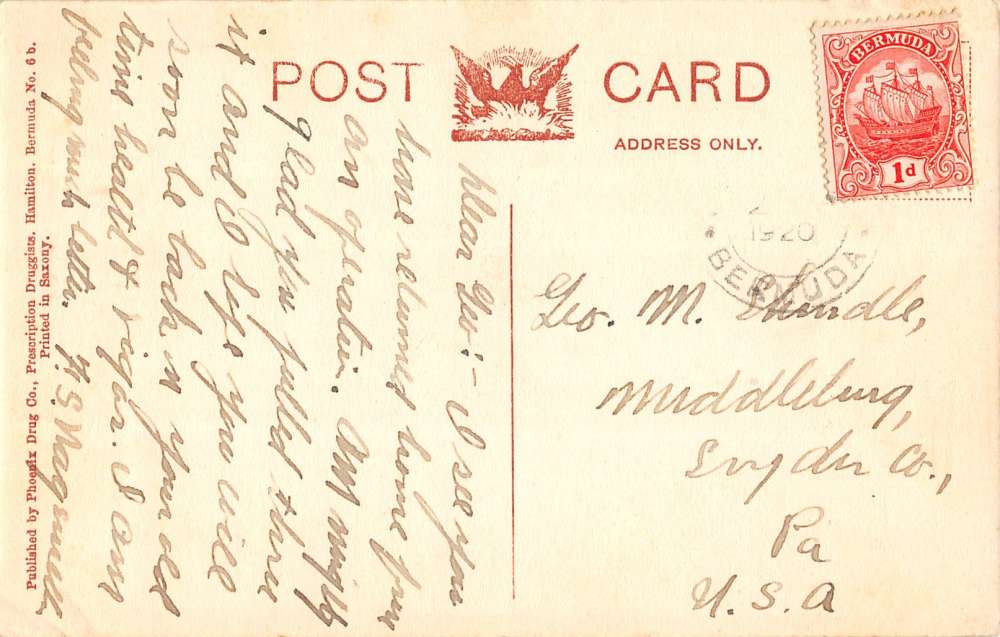 POST CARD
ADDRESS ONLY.
BERMUDA
1d
1920
BERMUDA
Geo. M. Shindle,
Middleburg,
Snyder Co.,
Pa
U.S.A
Dear Geo:- I see you
have returned home from
an operation. Am mighty
glad you pulled thru
it and I hope you will
soon be back in your old
time health & vigor. I am
feeling much better.
Published by Phoenix Drug Co., Prescription Druggists, Hamilton, Bermuda No. 6 b.
Printed in Saxony.